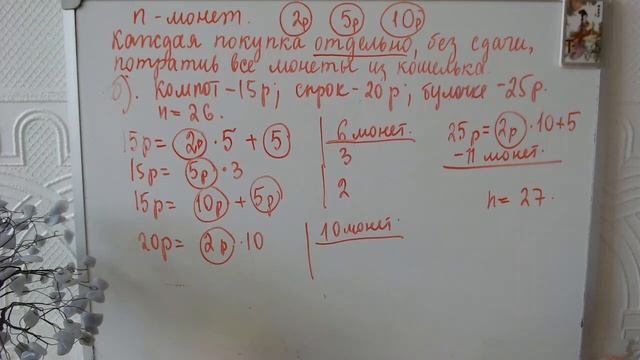 n - монет. 2р 5р 10р
Каждая покупка отдельно, без сдачи,
потратив все монеты из кошелька.
б). компот - 15р; сырок - 20р; булочке - 25р.
n = 26.
15р = 2р · 5 + 5 6 монет.
15р = 5р · 3 3
15р = 10р + 5р 2
20р = 2р · 10 10 монет.
25р = 2р · 10 + 5
- 11 монет.
n = 27.